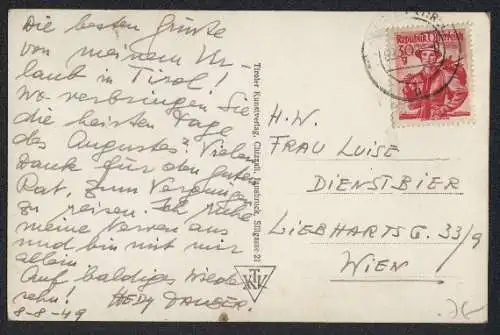 Die besten Grüsse
von meinem Ur-
laub in Tirol!
Wo verbringen Sie
die heissen Tage
des Augustes? Vielen
Dank für den guten
Rat, zum Vergnügen
zu reisen. Ich ruhe
meine Nerven aus
und bin mit mir
allein
Auf baldiges Wieder-
sehn! HEDY
8-8-49
Tiroler Kunstverlag, Chizzali, Innsbruck, Sillgasse 21
TKV
Republik Österreich
30g
H.W.
FRAU LUISE
DIENSTBIER
LIEBHARTSG. 33/9
WIEN